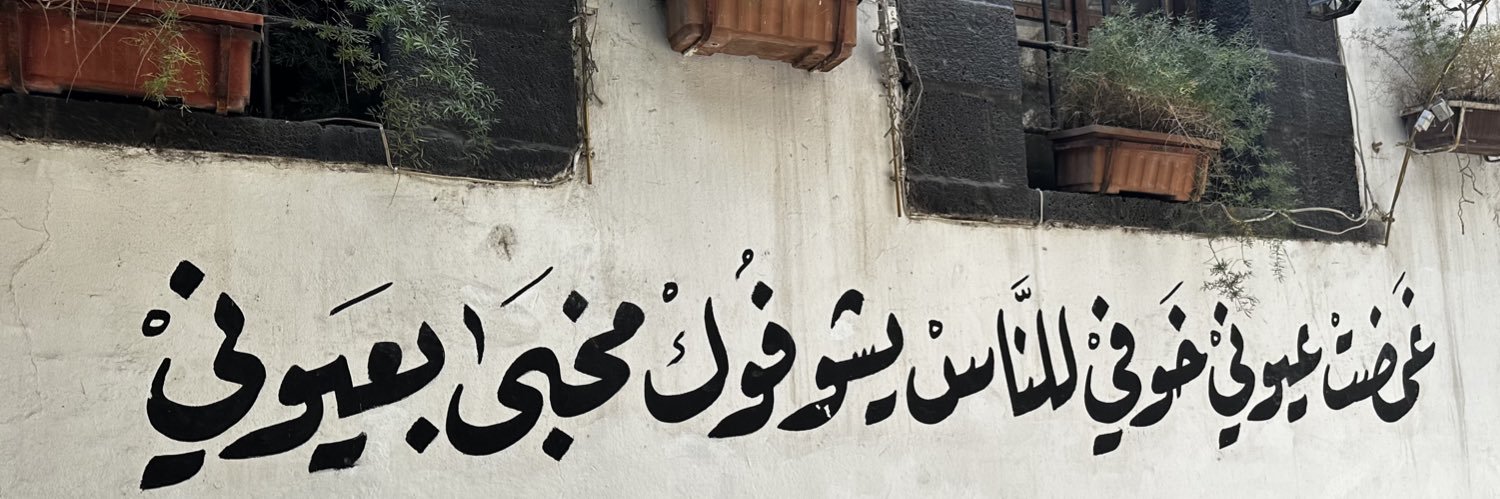 غَمضتْ عيونيْ خَوفيْ للنَّاسْ يشوفُوكْ مخبىَ بعَيونيْ